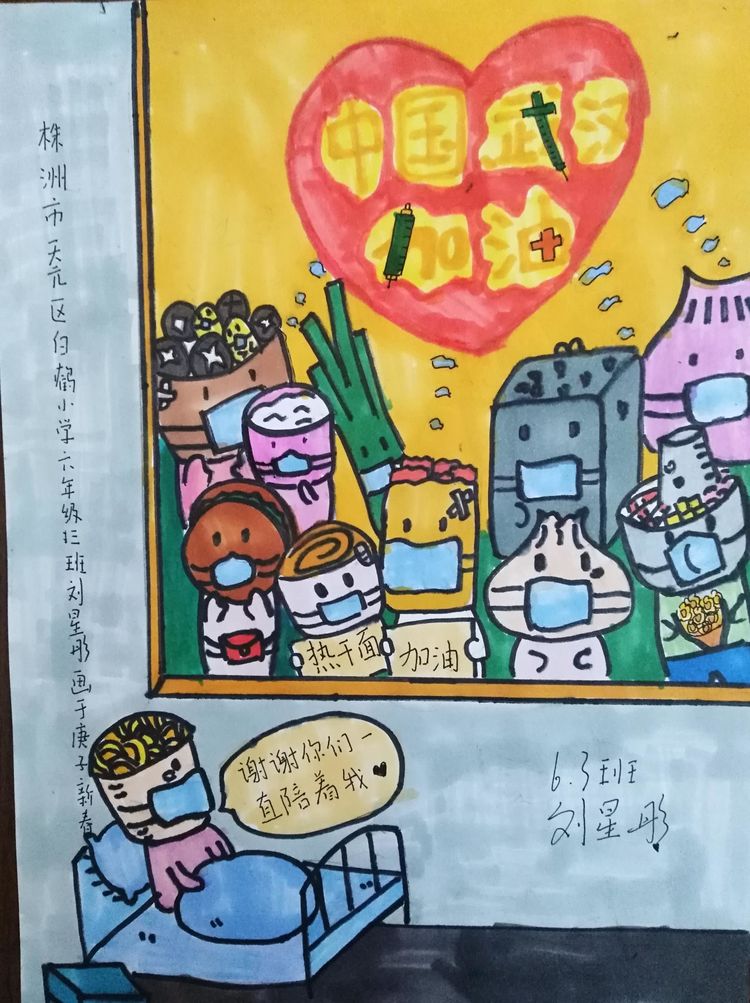 中国武汉
加油
热干面
加油
谢谢你们一
直陪着我
6.3班
刘星彤
株洲市天元区白鹤小学六年级三班刘星彤画于庚子新春